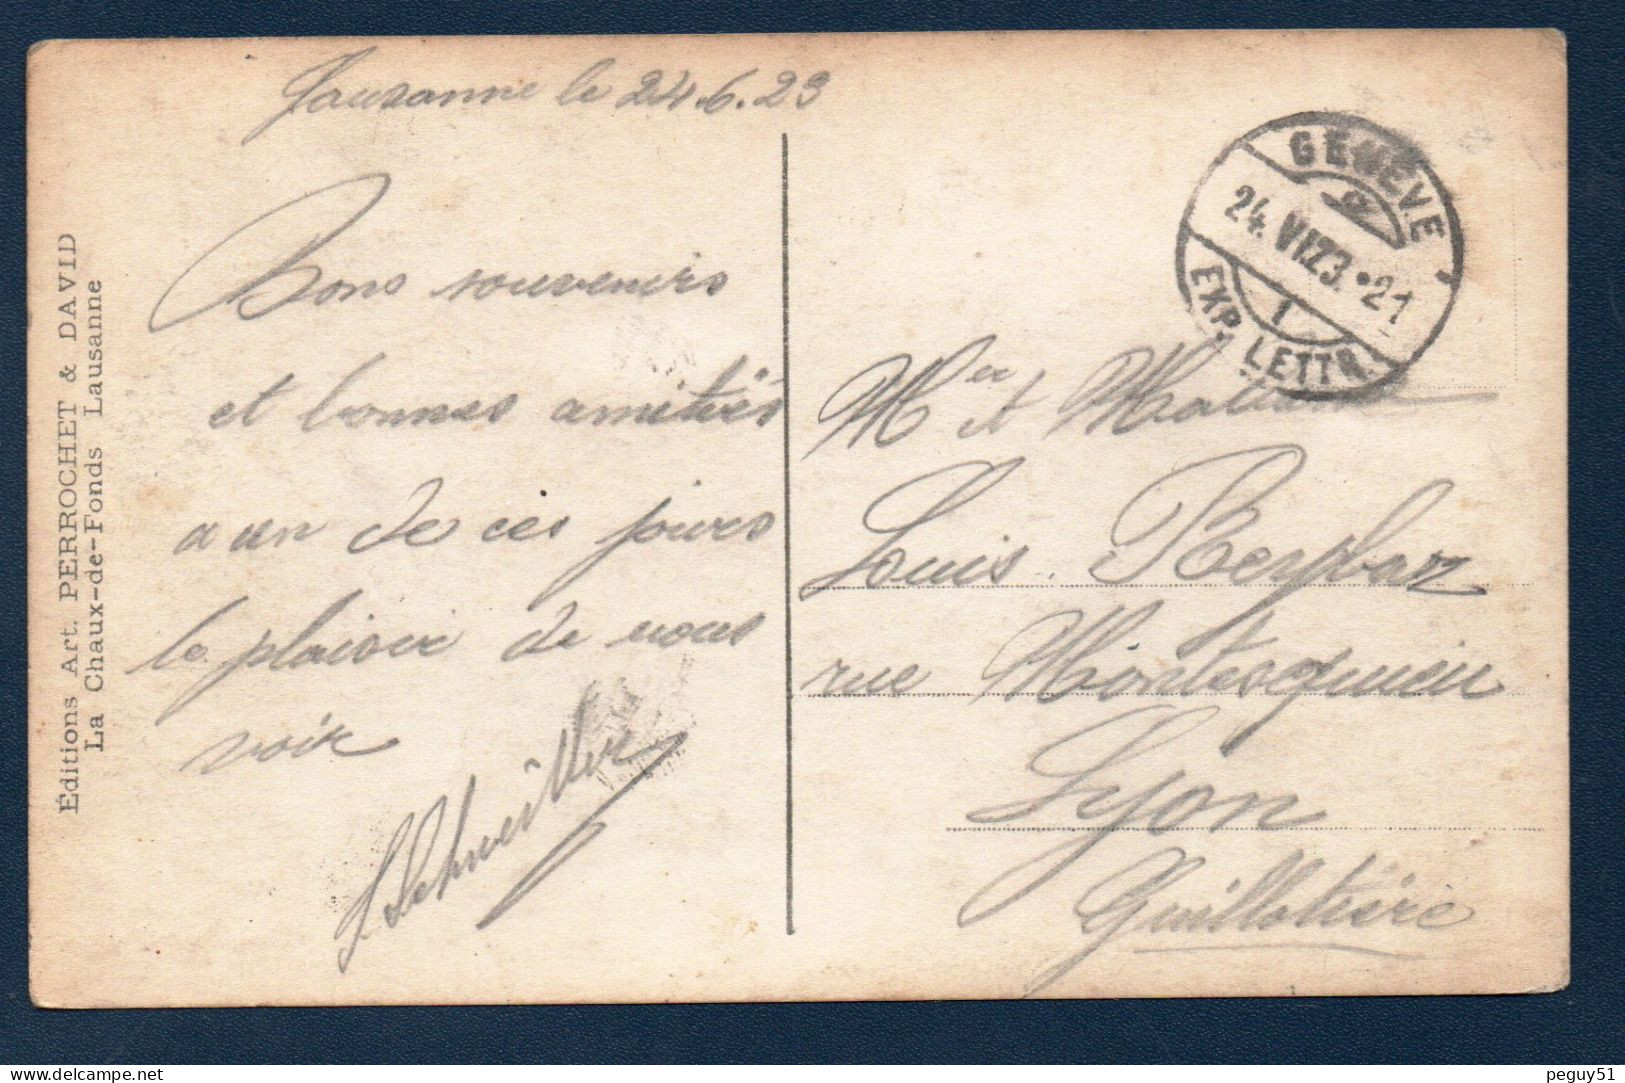 Lausanne le 24.6.23
Bons souvenirs
et bonnes amitiés
a un de ces jours
le plaisir de vous
voir
Éditions Art. PERROCHET & DAVID
La Chaux-de-Fonds Lausanne
GENÈVE
24.VI.23.•21
1
EXP. LETTR.
Mr et Madame
Louis
rue Montesqmieu
Lyon
Guillotière
peguy51